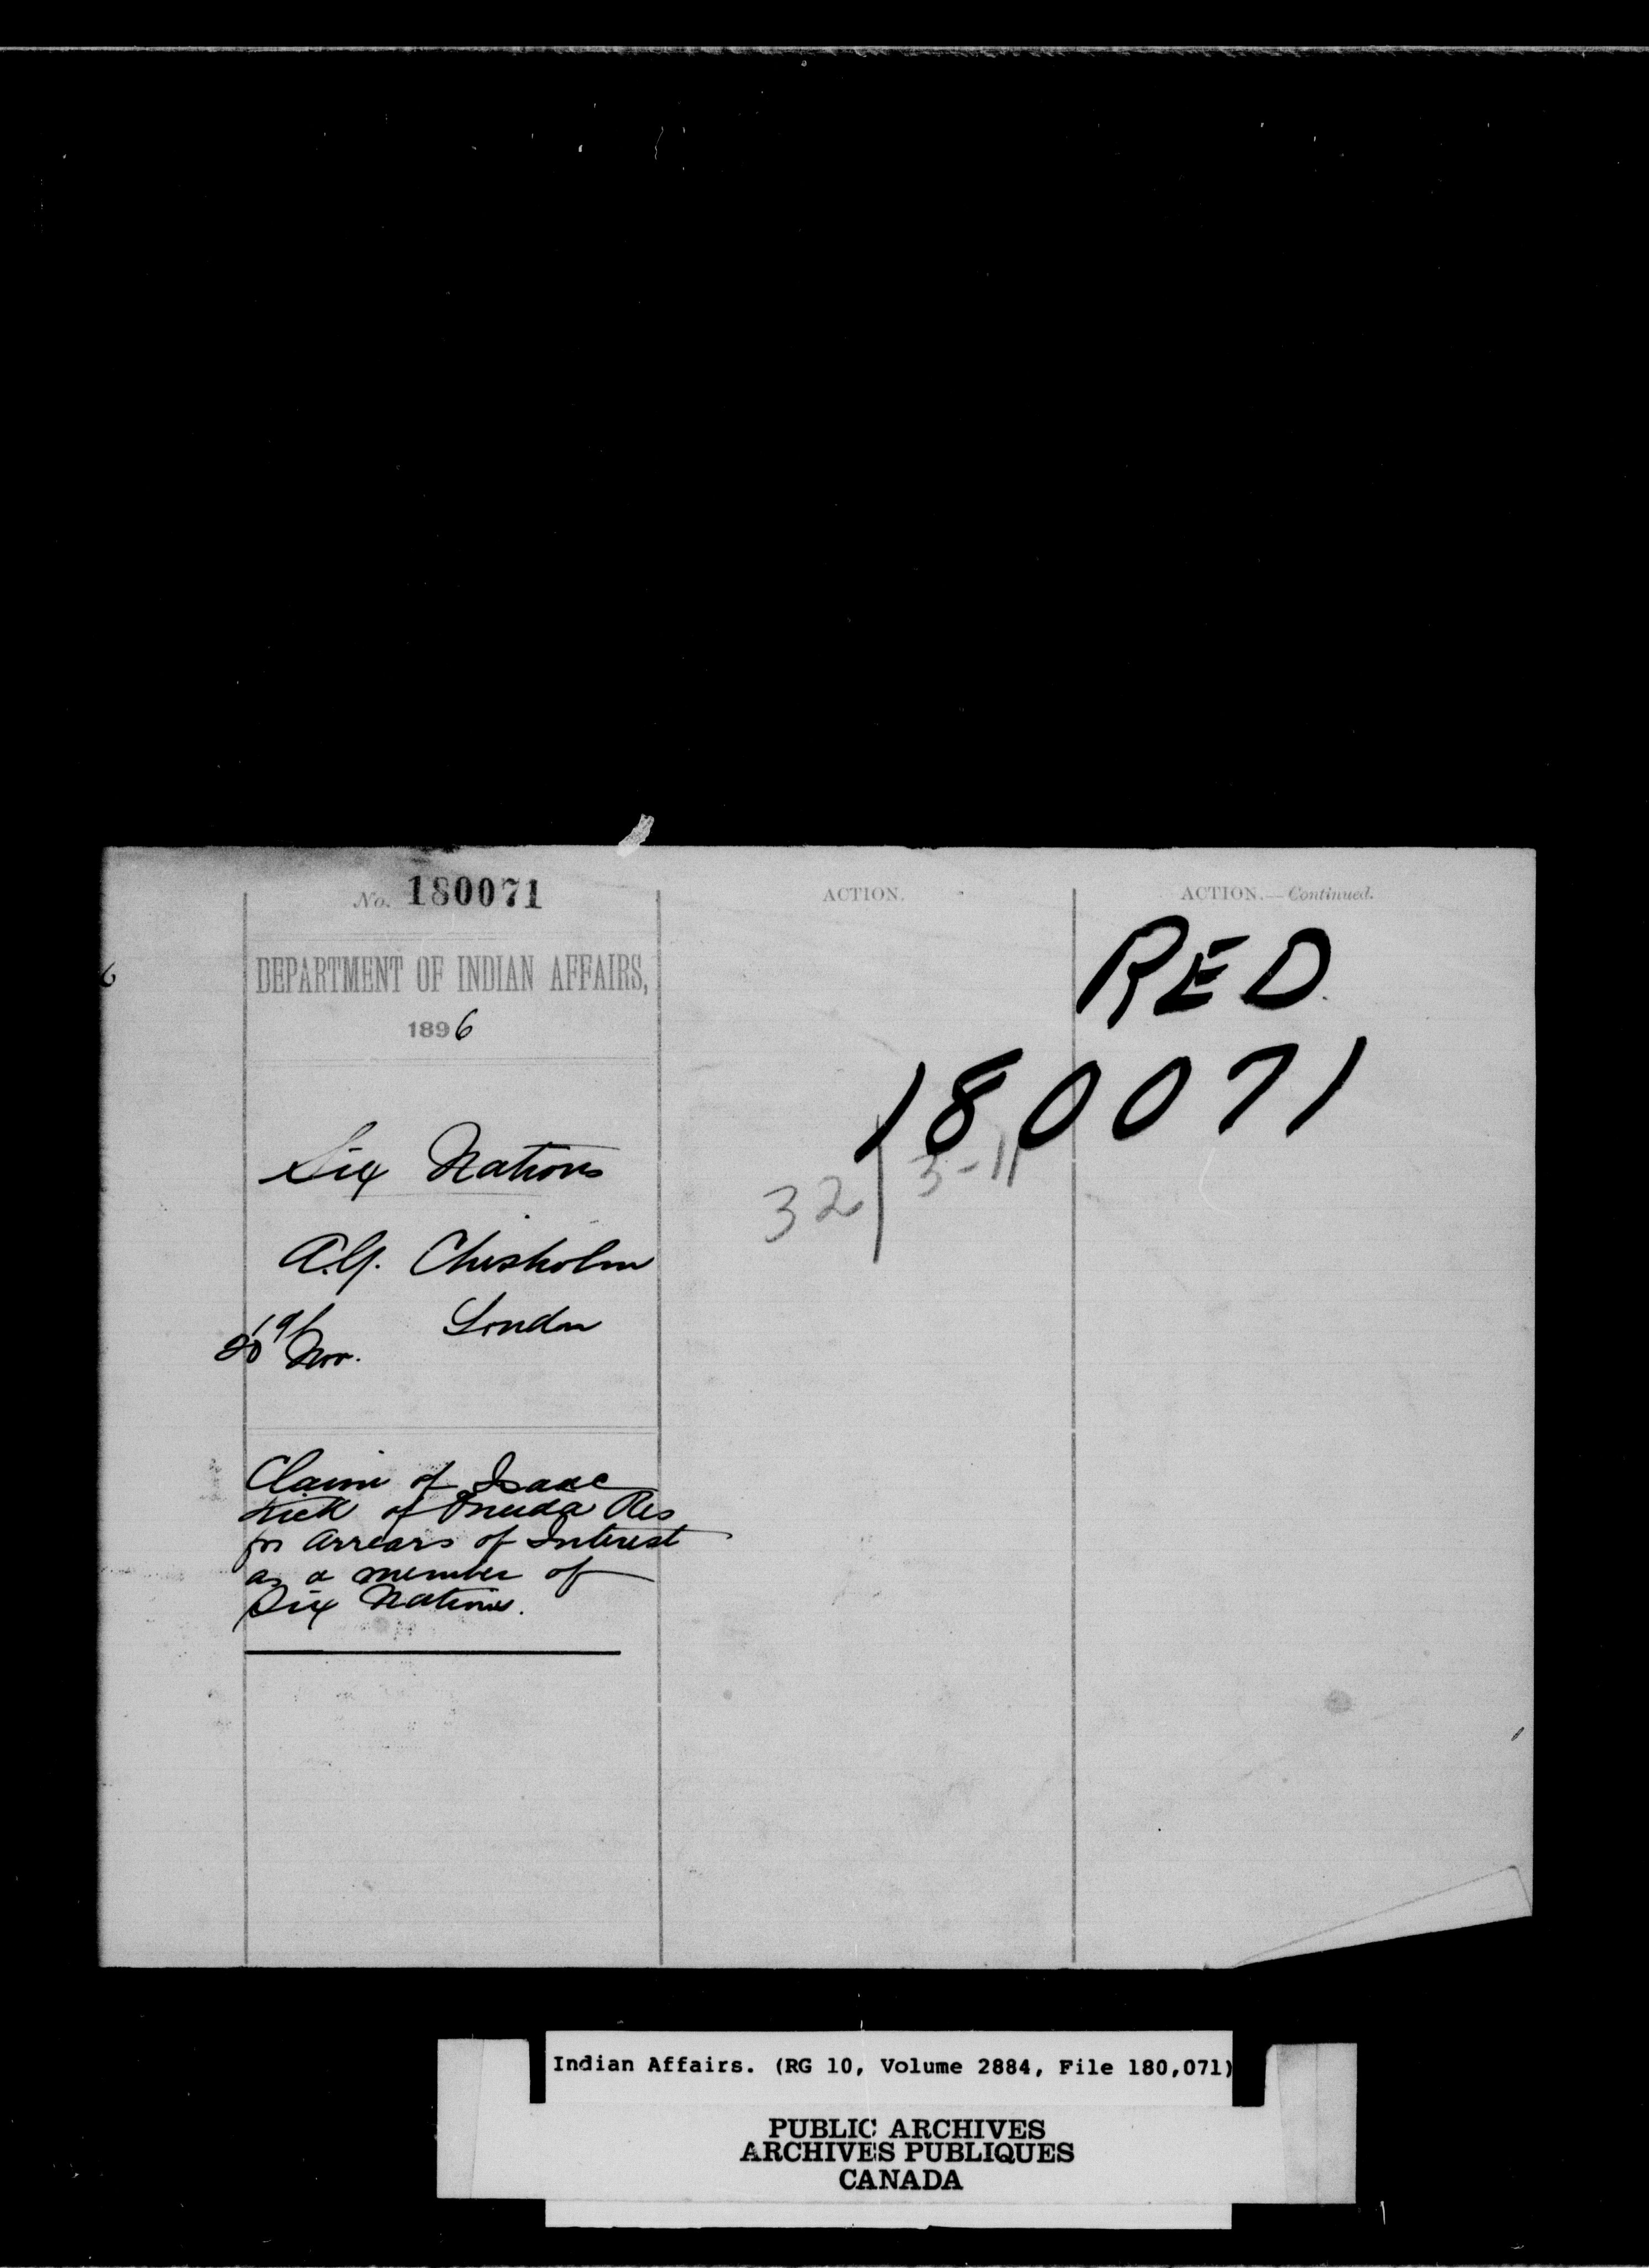 No. 180071
DEPARTMENT OF INDIAN AFFAIRS,
1896
Six Nations
A.G. Chisholm
London
19/
20 Nov.
Claim of Isaac
Kick of Oneida Res
for Arrears of Interest
as a member of
Six Nations.
ACTION.
ACTION.—Continued.
RED
180071
32/3-11
Indian Affairs. (RG 10, Volume 2884, File 180,071)
PUBLIC ARCHIVES
ARCHIVES PUBLIQUES
CANADA